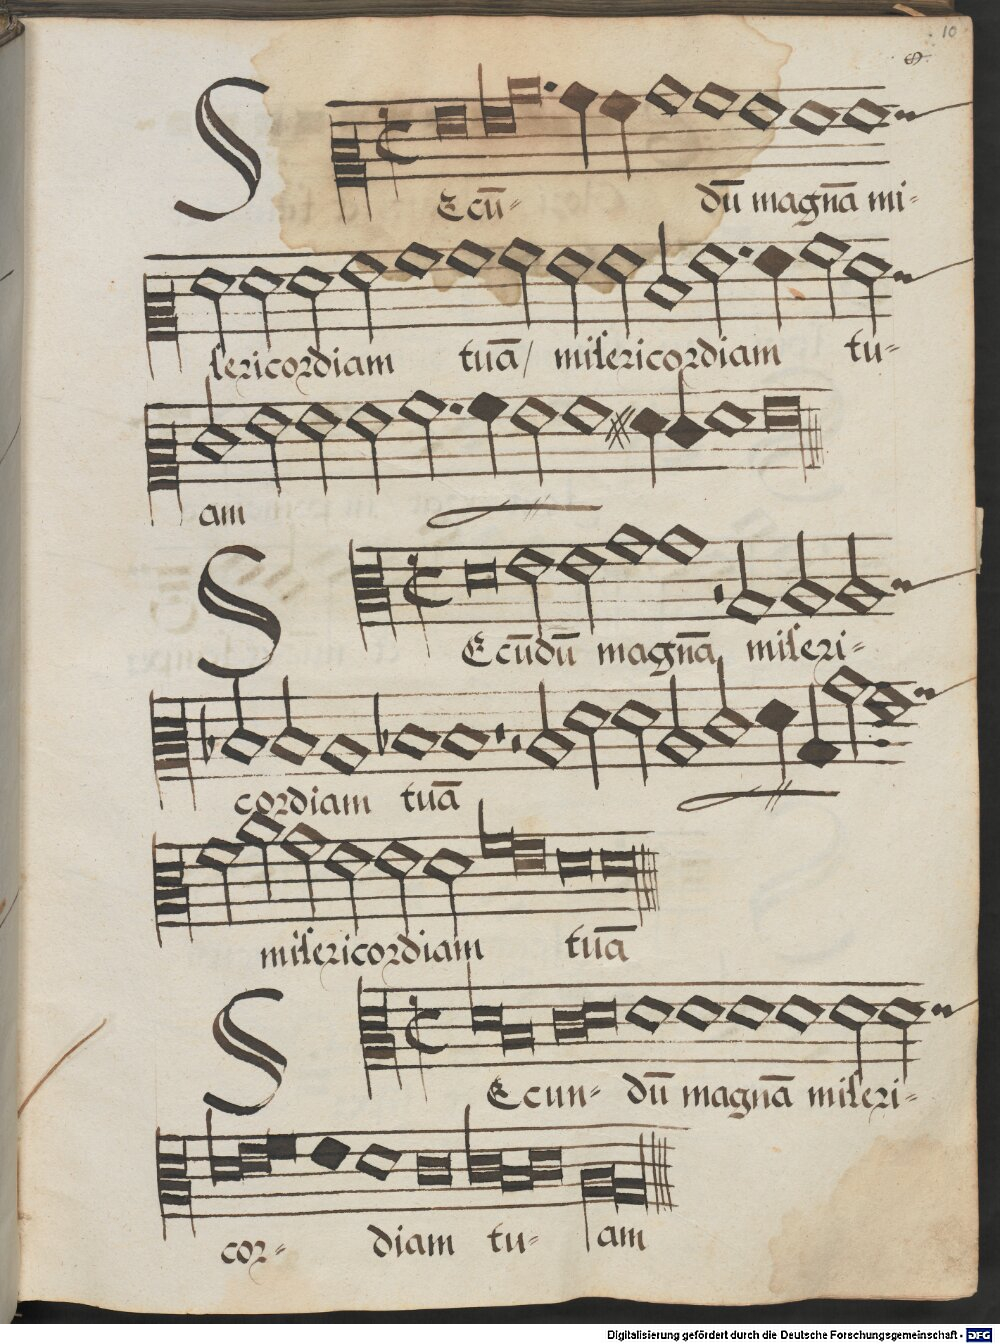 10
S Ecū- dū magnā mi-
sericordiam tuā / misericordiam tu-
am
S Ecūdū magnā miseri-
cordiam tuā
misericordiam tuā
S Ecun- dū magnā miseri-
cor- diam tu- am
Digitalisierung gefördert durch die Deutsche Forschungsgemeinschaft - DFG